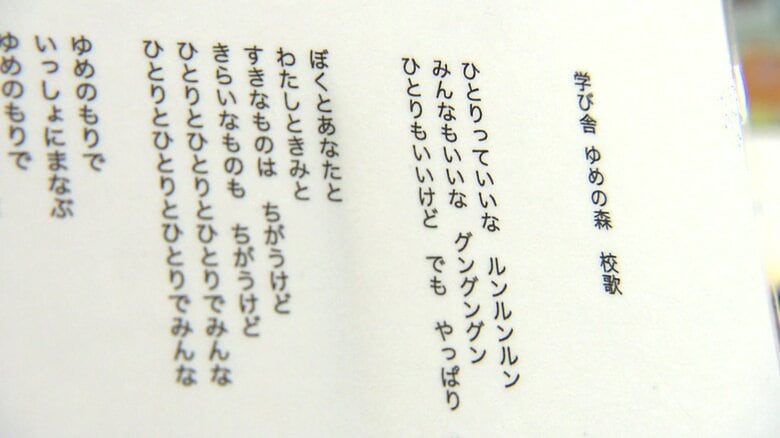 学び舎 ゆめの森　校歌
ひとりっていいな　ルンルンルン
みんなもいいな　グングングン
ひとりもいいけど　でも　やっぱり
ぼくとあなたと
わたしときみと
すきなものは　ちがうけど
きらいなものも　ちがうけど
ひとりとひとりとひとりでみんな
ひとりとひとりとひとりでみんな
ゆめのもりで
いっしょにまなぶ
ゆめのもりで